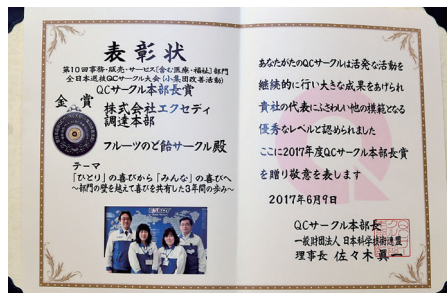 表彰状
第10回事務・販売・サービス[含む医療・福祉]部門
全日本選抜QCサークル大会(小集団改善活動)
QCサークル本部長賞
金賞
株式会社エクセディ
調達本部
フルーツのど飴サークル殿
テーマ
「ひとり」の喜びから「みんな」の喜びへ
～部門の壁を越えて喜びを共有した3年間の歩み～
あなたがたのQCサークルは活発な活動を
継続的に行い大きな成果をあげられ
貴社の代表にふさわしい他の模範となる
優秀なレベルと認められました
ここに2017年度QCサークル本部長賞
を贈り敬意を表します
2017年6月9日
QCサークル本部長
一般財団法人 日本科学技術連盟
理事長 佐々木眞一